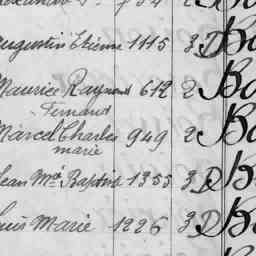 Augustin Etienne 1115 3 D Bo
Maurice Raymond 612 2 Bo
Fernand
Marcel Charles 949 2 Bo
marie
Jean Mie Baptiste 1355 3 D B
Louis Marie 1226 3 D Bo